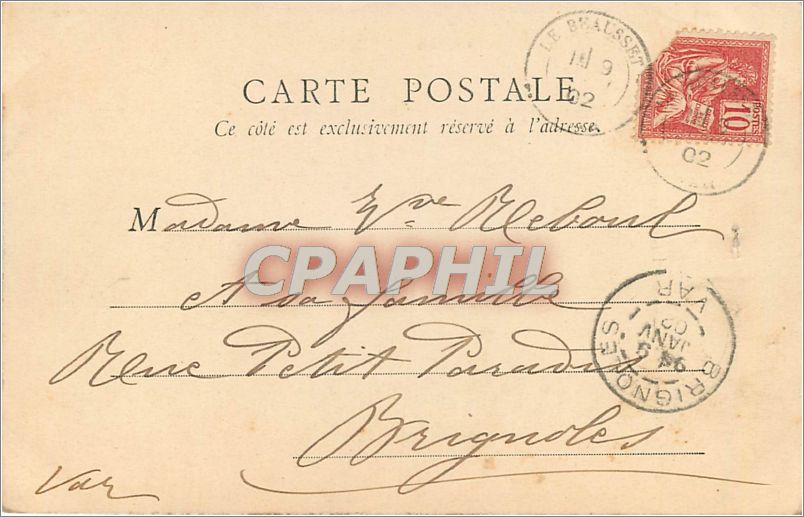 CARTE POSTALE
Ce côté est exclusivement réservé à l'adresse.
LE BEAUSSET
9
02
10
POSTES
02
Madame Vve Reboul
CPAPHIL
A sa famille
Rue Petit Paradis
Brignoles
Var
BRIGNOLES
VAR
JANV
02